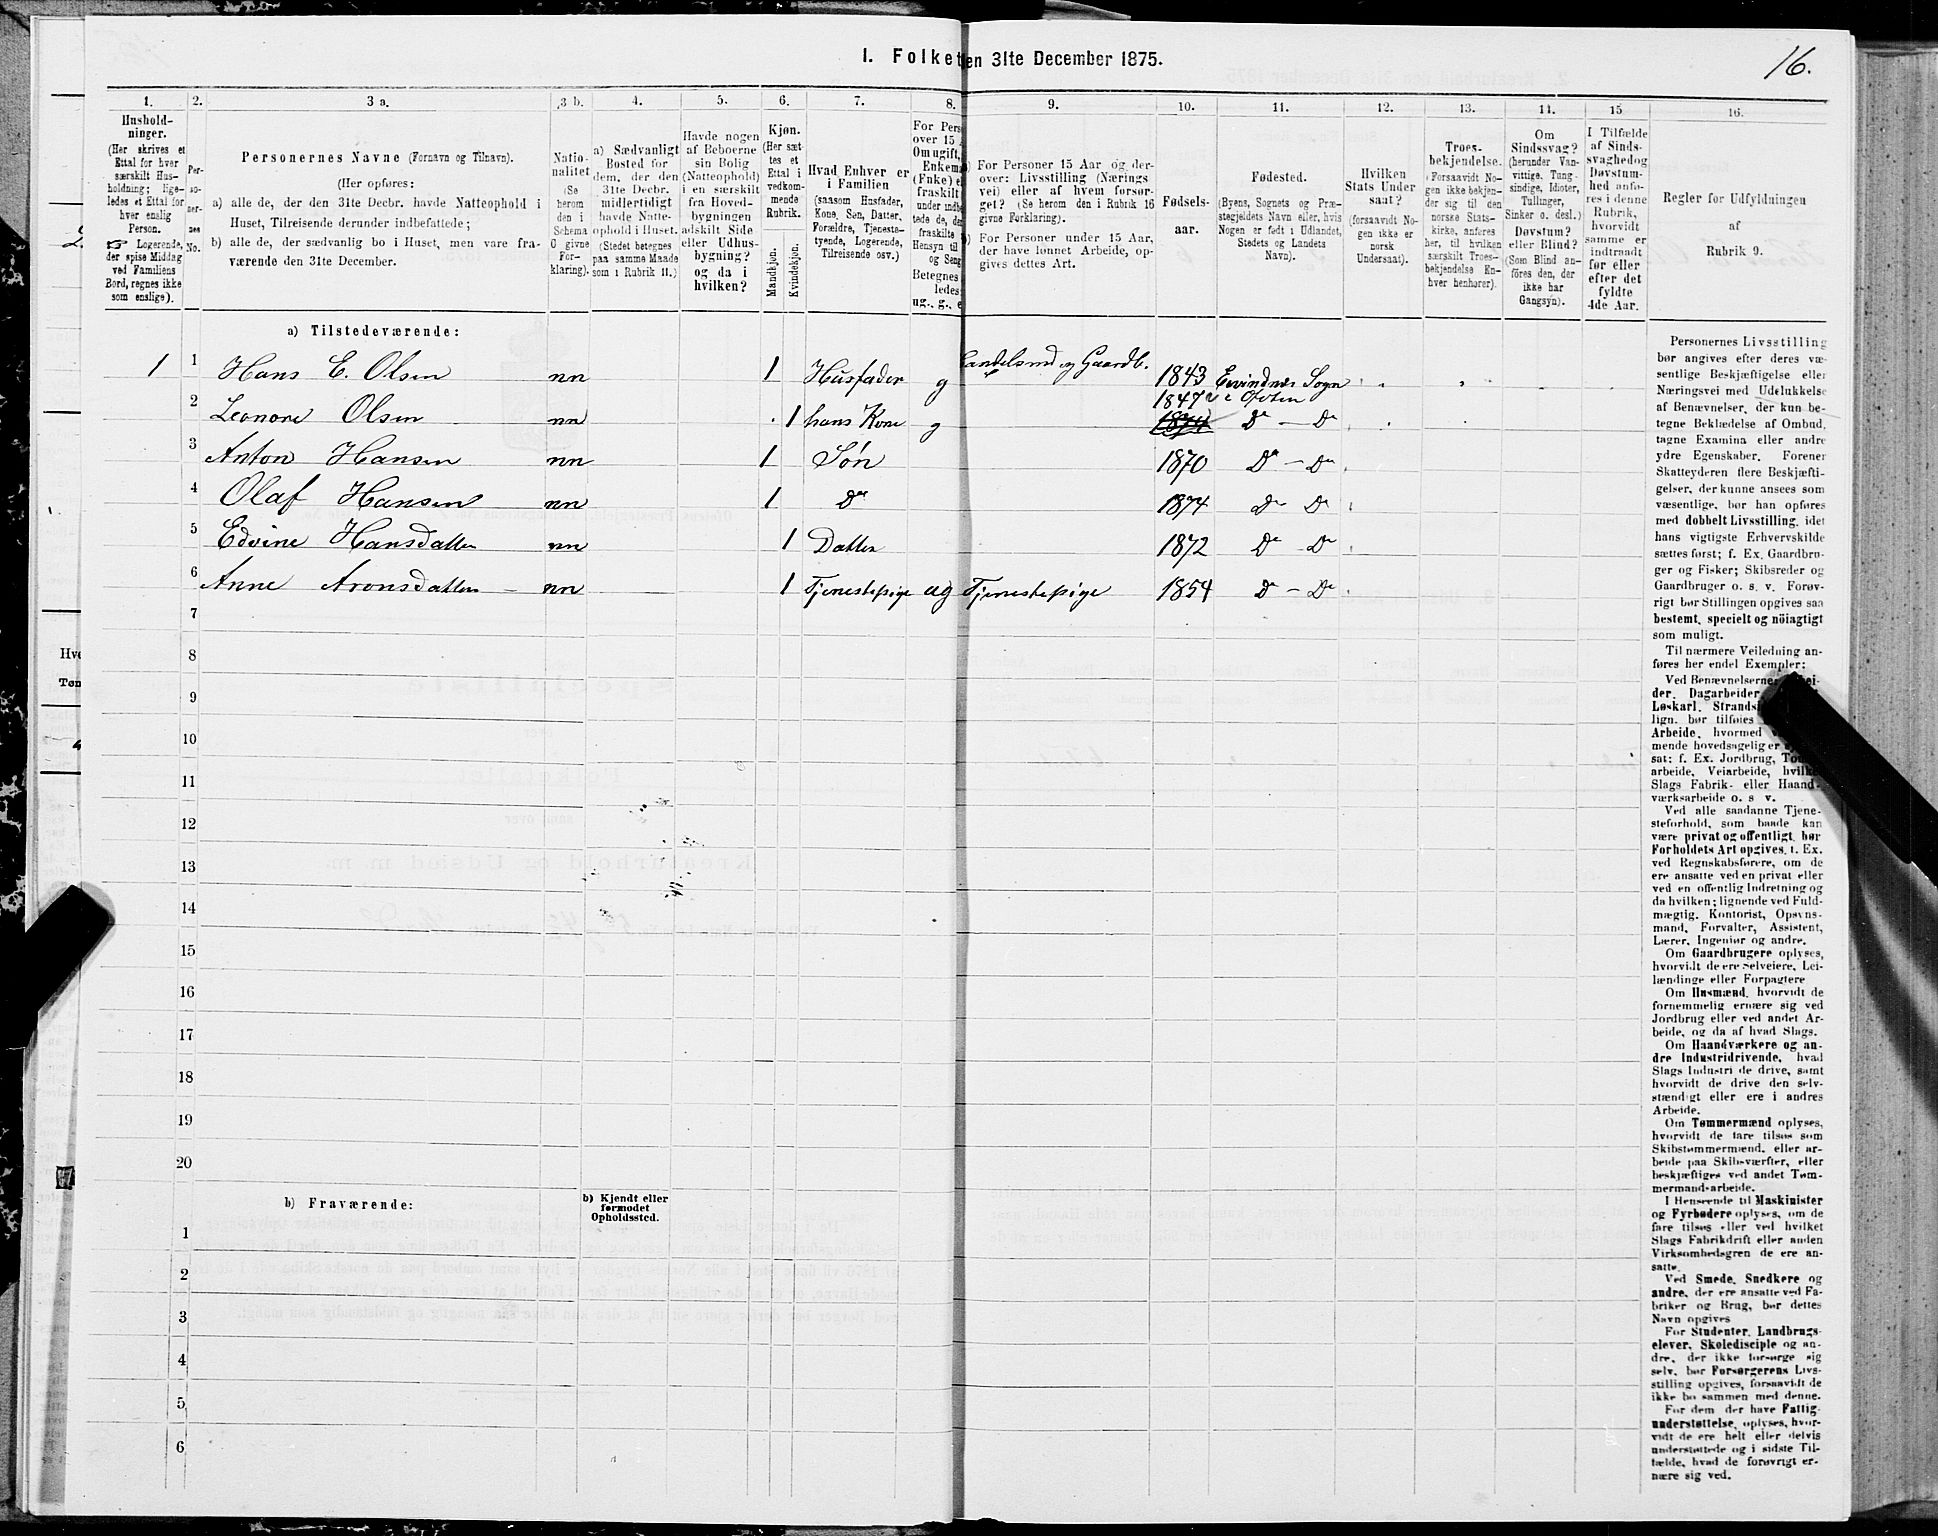 I. Folket
en 31te December 1875.
16.
1.
2.
3 a.
3 b.
4.
5.
6.
7.
8.
9.
10.
11.
12.
13.
14.
15
16.
Hushold-
ninger.
(Her skrives et
Ettal for hver
særskilt Hus-
holdning; lige-
ledes et Ettal for
hver enslig
Person.
☞ Logerende,
der spise Middag
ved Familiens
Bord, regnes ikke
som enslige).
Per-
so-
ner-
nes
No.
Personernes Navne (Fornavn og Tilnavn).
(Her opføres:
a) alle de, der den 31te Decbr. havde Natteophold i
Huset, Tilreisende derunder indbefattede;
b) alle de, der sædvanlig bo i Huset, men vare fra-
værende den 31te December.
Natio-
nalitet
(Se
herom
den i
Schema
O givne
For-
klaring).
a) Sædvanligt
Bosted for
dem, der den
31te Decbr.
midlertidigt
havde Natte-
ophold i Huset.
(Stedet betegnes
paa samme Maade
som i Rubrik 11.)
Havde nogen
af Beboerne
sin Bolig
(Natteophold)
i en særskilt
fra Hoved-
bygningen
adskilt Side
eller Udhus-
bygning?
og da i
hvilken?
Kjøn.
(Her sæt-
tes et
Ettal i
vedkom-
mende
Rubrik.
Mandkjøn.
Kvindekjøn.
Hvad Enhver er
i Familien
(saasom Husfader,
Kone, Søn, Datter,
Forældre, Tjeneste-
tyende, Logerende,
Tilreisende osv.)
For Pers
over 15 A
Om ugift,
Enkem
(Enke) e
fraskilt
under indb
tede de, de
fraskilte
Hensyn til
og Seng
Betegnes
ledes:
ug., g., e
) For Personer 15 Aar og der-
over: Livsstilling (Nærings
vei) eller af hvem forsør-
get? (Se herom den i Rubrik 16
givne Forklaring).
) For Personer under 15 Aar,
der have lønnet Arbeide, op-
gives dettes Art.
Fødsels-
aar.
Fødested.
(Byens, Sognets og Præ-
stegjeldets Navn eller, hvis
Nogen er født i Udlandet,
Stedets og Landets
Navn).
Hvilken
Stats Under
saat?
(forsaavidt No-
gen ikke er
norsk
Undersaat).
Troes-
bekjendelse.
(Forsaavidt No-
gen ikke bekjen-
der sig til den
norske Stats-
kirke, anføres
her, til hvilken
særskilt Troes-
bekjendelse En-
hver henhører).
Om
Sindssvag?
(herunder Van-
vittige, Tung-
sindige, Idioter,
Tullinger,
Sinker o. desl.)
Døvstum?
eller Blind?
(Som Blind an-
føres den, der
ikke har
Gangsyn).
I Tilfælde
af Sinds-
svaghed og
Døvstum-
hed anfø-
res i denne
Rubrik,
hvorvidt
samme er
indtraadt
før eller
efter det
fyldte
4de Aar.
Regler for Udfyldningen
af
Rubrik 9.
a) Tilstedeværende:
1 1 Hans E. Olsen nn 1 Husfader g Handelsmd og Gaardb. 1843 Evindnæs Sogn
1847 i Ofoten
2 Leonore Olsen nn 1 hans Kone g 1874 Do – Do
3 Anton Hansen nn 1 Søn 1870 Do – Do
4 Olaf Hansen nn 1 Do 1874 Do Do
5 Edvine Hansdatter nn 1 Datter 1872 Do Do
6 Anne Aronsdatter nn 1 Tjenestepige ug Tjenestepige 1854 Do – Do
7
8
9
10
11
12
13
14
15
16
17
18
19
20
b) Fraværende:
b) Kjendt eller
formodet
Opholdssted.
1
2
3
4
5
6
Personernes Livsstilling
bør angives efter deres væ-
sentlige Beskjæftigelse eller
Næringsvei med Udelukkelse
af Benævnelser, der kun be-
tegne Beklædelse af Ombud,
tagne Examina eller andre
ydre Egenskaber. Forener
Skatteyderen flere Beskjæfti-
gelser, der kunne ansees som
væsentlige, bør han opføres
med dobbelt Livsstilling, idet
hans vigtigste Erhvervskilde
sættes først; f. Ex. Gaardbru-
ger og Fisker; Skibsreder og
Gaardbruger o. s. v. Forøv-
rigt bør Stillingen opgives saa
bestemt, specielt og nöiagtigt
som muligt.
Til nærmere Veiledning an-
føres her endel Exempler:
Ved Benævnelserne
der, Dagarbeider,
Løskarl, Strands
lign. bør tilføies
Arbeide, hvormed
mende hovedsagelig er
sat; f. Ex. Jordbrug,
arbeide, Veiarbeide, hvilke
Slags Fabrik- eller Haand-
værksarbeide o. s v.
Ved alle saadanne Tjene-
steforhold, som baade kan
være privat og offentligt, bør
Forholdets Art opgives, t. Ex.
ved Regnskabsførere, om de
ere ansatte ved en privat eller
ved en offentlig Indretning og
da hvilken; lignende ved Fuld-
mægtig, Kontorist, Opsyns-
mand, Forvalter, Assistent,
Lærer, Ingeniør og andre.
Om Gaardbrugere oplyses,
hvorvidt de ere Selveiere, Lei-
lændinge eller Forpagtere
Om Husmænd, hvorvidt de
fornemmelig ernære sig ved
Jordbrug eller ved andet Ar-
beide, og da af hvad Slags.
Om Haandværkere og an-
dre Industridrivende, hvad
Slags Industri de drive, samt
hvorvidt de drive den selv-
stændigt eller ere i andres
Arbeide.
Om Tømmermænd oplyses,
hvorvidt de fare tilsøs som
Skibstømmermænd, eller ar-
beide paa Skibsværfter, eller
beskjæftiges ved andet Tøm-
mermand-arbeide.
I Henseende til Maskinister
og Fyrbødere oplyses, om de
fare tilsøs eller ved hvilket
Slags Fabrikdrift eller anden
Virksomhedsgren de ere an-
satte.
Ved Smede, Snedkere og
andre, der ere ansatte ved Fa-
briker og Brug, bør dettes
Navn opgives
For Studenter, Landbrugs-
elever, Skoledisciple og an-
dre, der ikke forsørge sig
selv, bør Forsørgerens Livs-
stilling opgives, forsaavidt de
ikke bo sammen med denne.
For dem der have Fattig-
understøttelse, oplyses, hvor-
vidt de ere helt eller delvis
understøttede og i sidste Til-
fælde, hvad de forøvrigt er-
nære sig ved.
Hve
Tøn